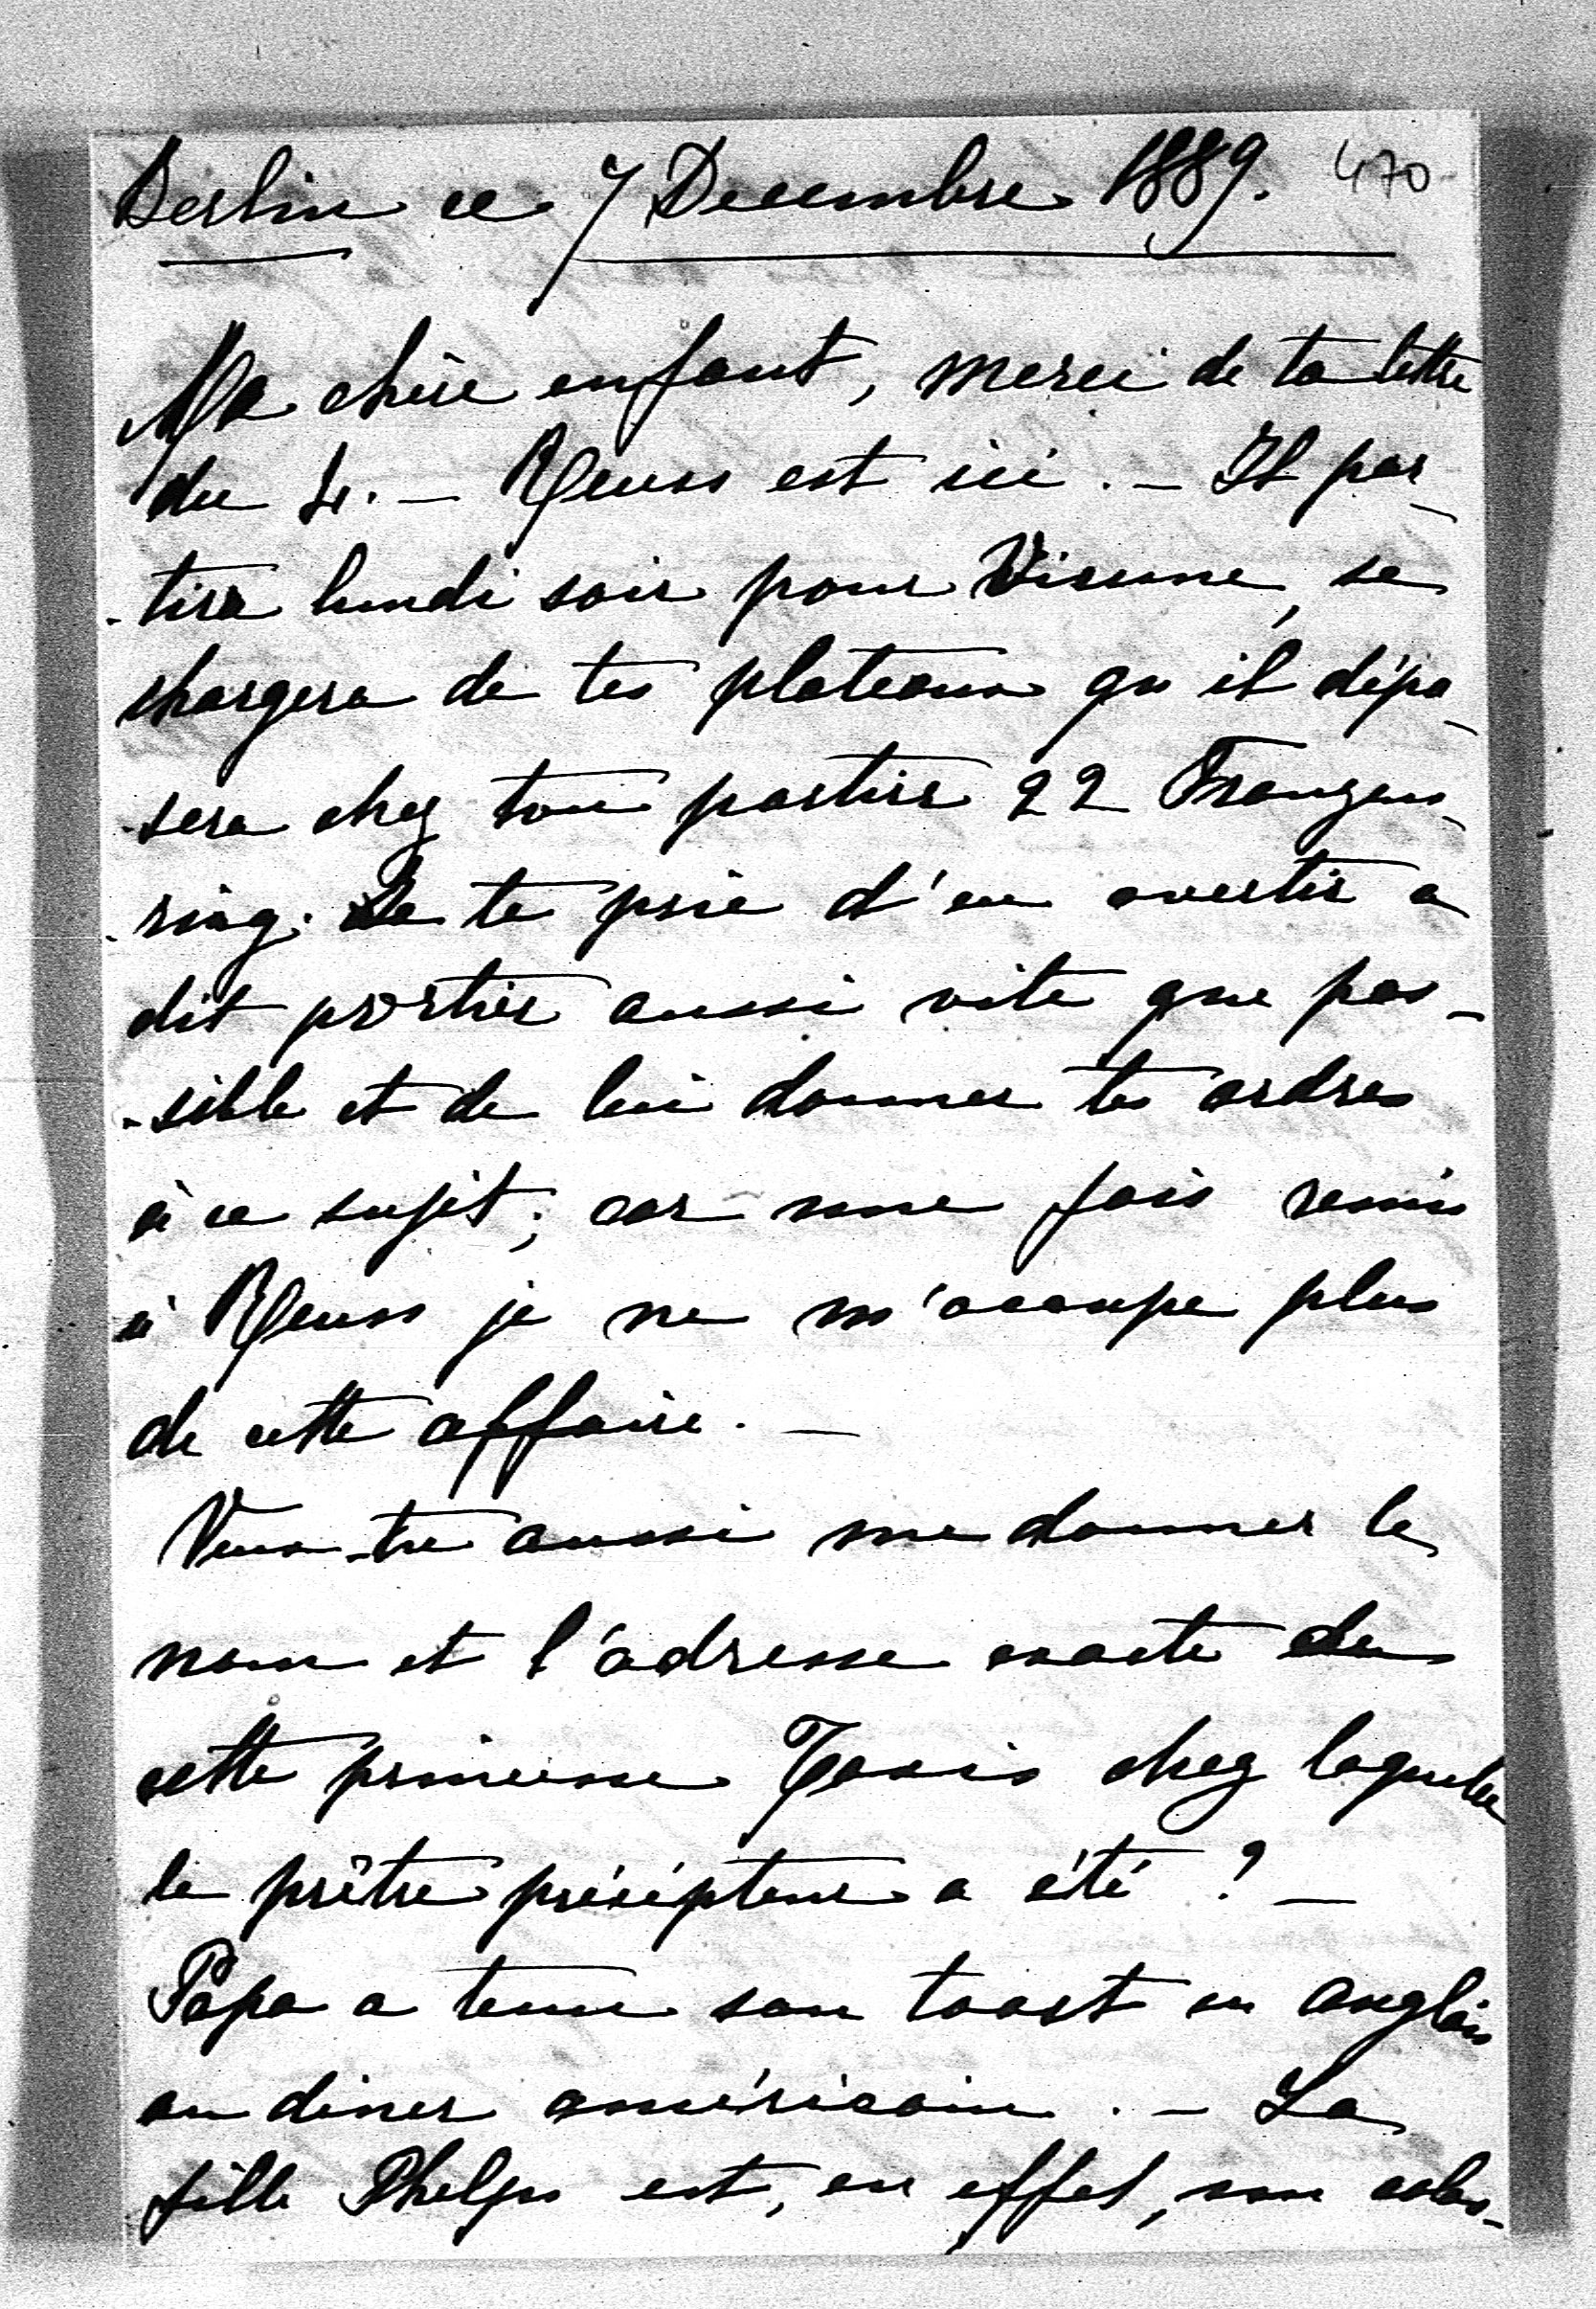 Berlin ce 7 Decembre 1889. 470
Ma chère enfant, merci de ta lettre
du 4. — Reuss est ici. — Il par-
-tira lundi soir pour Vienne, se
chargera de tes plateaux qu'il dépo-
-sera chez ton portier 22 Franzens-
-ring. Je te prie d'en avertir a
dit portier aussi vite que pos-
-sible et de lui donner tes ordres
à ce sujet; car une fois remis
à Reuss je ne m'occupe plus
de cette affaire. —
Veux-tu aussi me donner le
nom et l'adresse exacte de
cette princesse Taxis chez laquelle
le prêtre précépteur a été? —
Papa a tenu son toast en anglais
au diner américain. — La
fille Phelps est, en effet, une